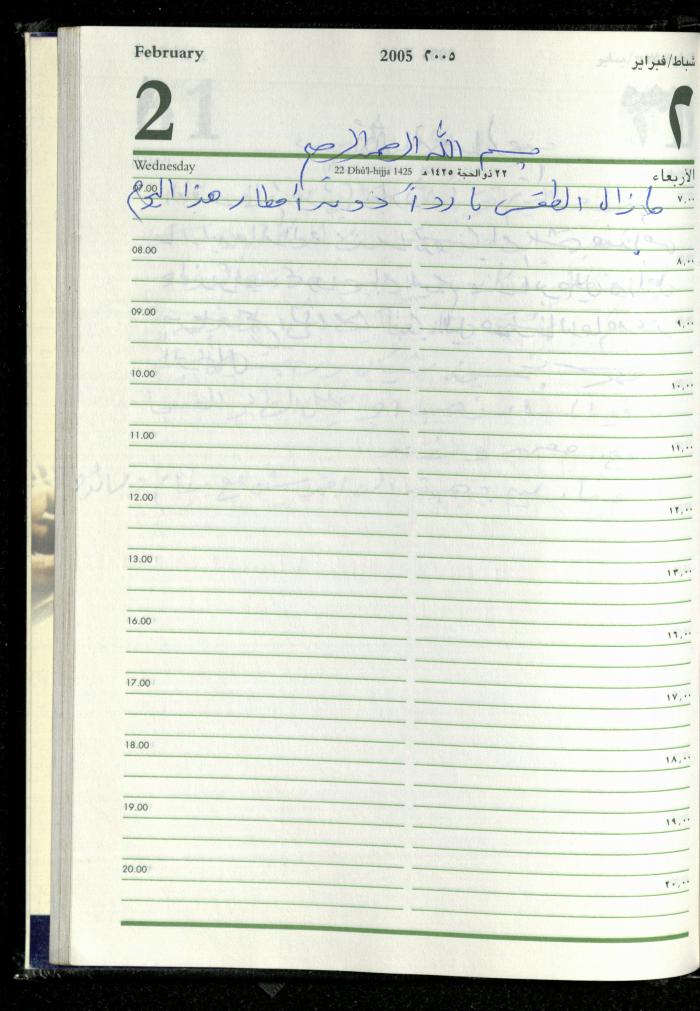 February 2005 ٢٠٠٥ شباط/فبراير
2 ٢
بسم الله الرحمن الرحيم
Wednesday 22 Dhû'l-hijja 1425 ٢٢ ذو الحجة ١٤٢٥ هـ الأربعاء
07.00 ٧,٠٠
مايزال الطقس بارداً دون أمطار هذا اليوم
08.00 ٨,٠٠
09.00 ٩,٠٠
10.00 ١٠,٠٠
11.00 ١١,٠٠
12.00 ١٢,٠٠
13.00 ١٣,٠٠
16.00 ١٦,٠٠
17.00 ١٧,٠٠
18.00 ١٨,٠٠
19.00 ١٩,٠٠
20.00 ٢٠,٠٠